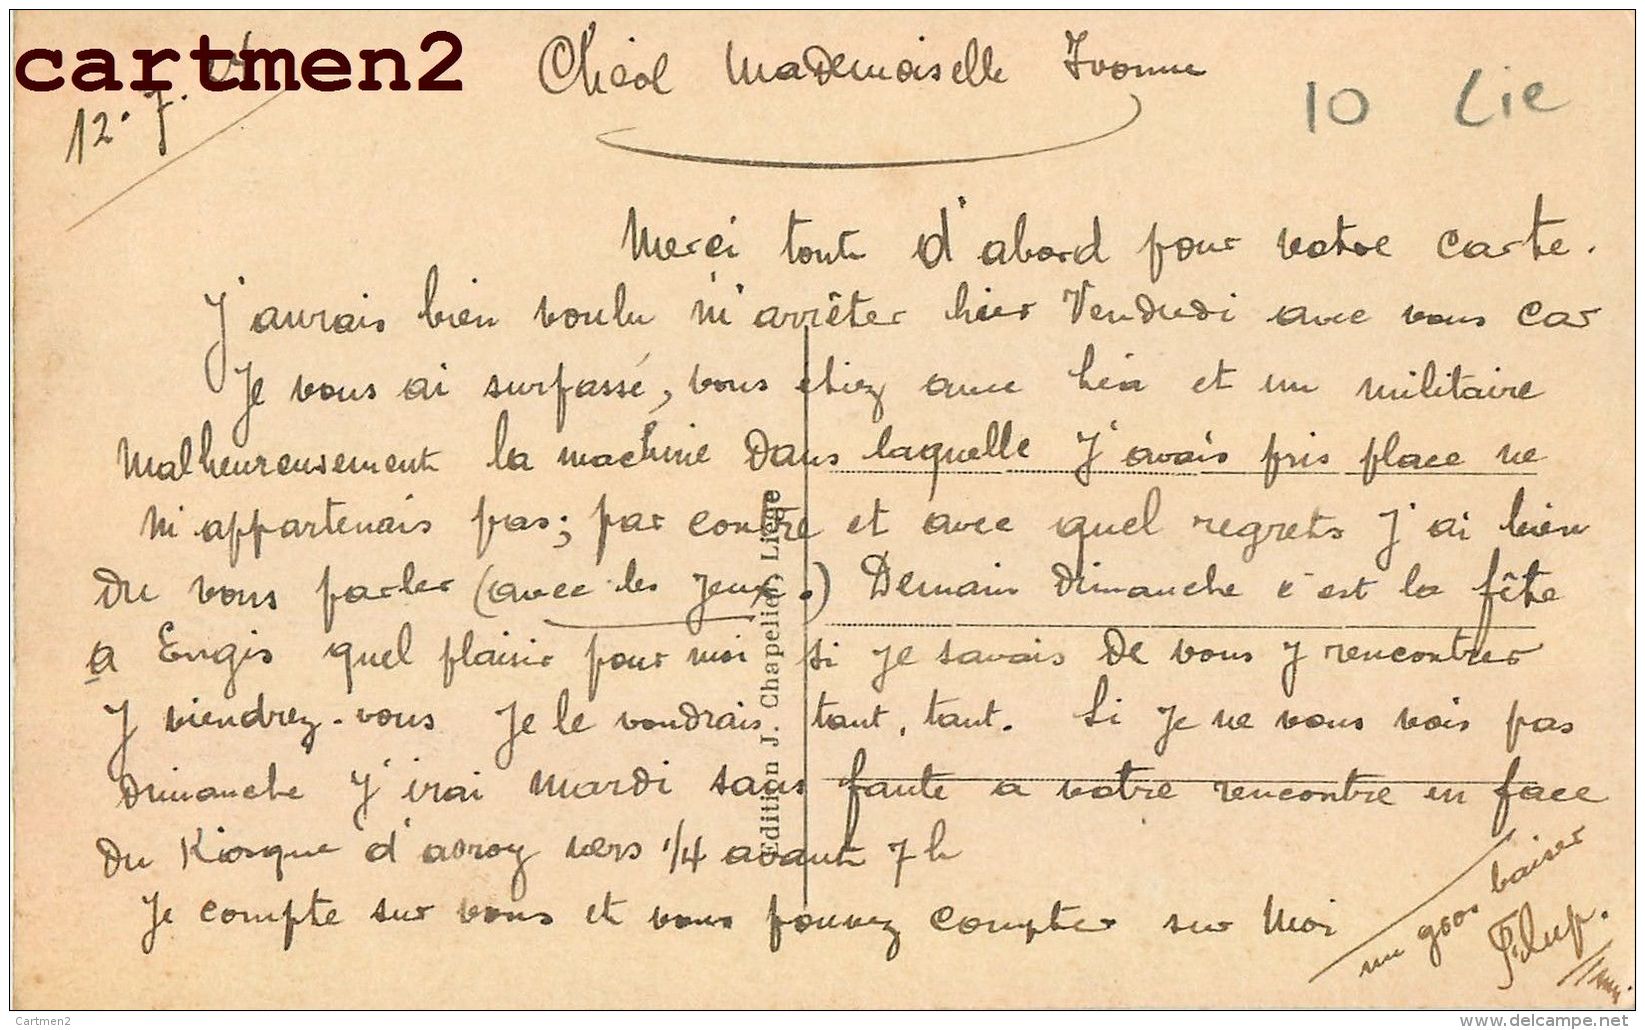 cartmen2
12. 7.
Chère Mademoiselle Yvonne
10 Lie
Merci tout d'abord pour votre carte.
J'aurais bien voulu m'arrêter hier Vendredi avec vous car
Je vous ai surpassé, vous étiez avec Léa et un militaire
Malheureusement la machine dans laquelle J'avais pris place ne
m'appartenais pas; par contre et avec quel regrets J'ai bien
du vous parler (avec les yeux.) Demain dimanche c'est la fête
a Engis quel plaisir pour moi si je savais de vous y rencontrer
y viendrez-vous Je le voudrais tant, tant. Si je ne vous vois pas
dimanche J'irai mardi sans faute a votre rencontre en face
du Kiosque d'avroy vers 1/4 avant 7 h
Je compte sur vous et vous pouvez compter sur Moi
un gros baiser
Edition J. Chapelier, Liége
Cartmen2
delcampe.net